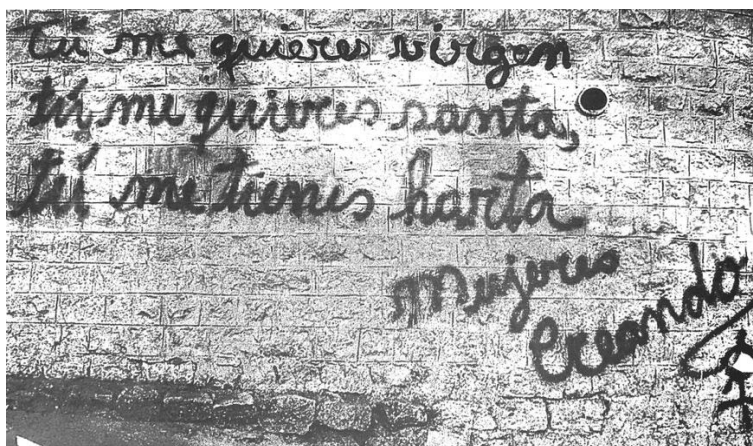 tú me quieres virgen
tú me quieres santa,
tú me tienes harta
mujeres
creando